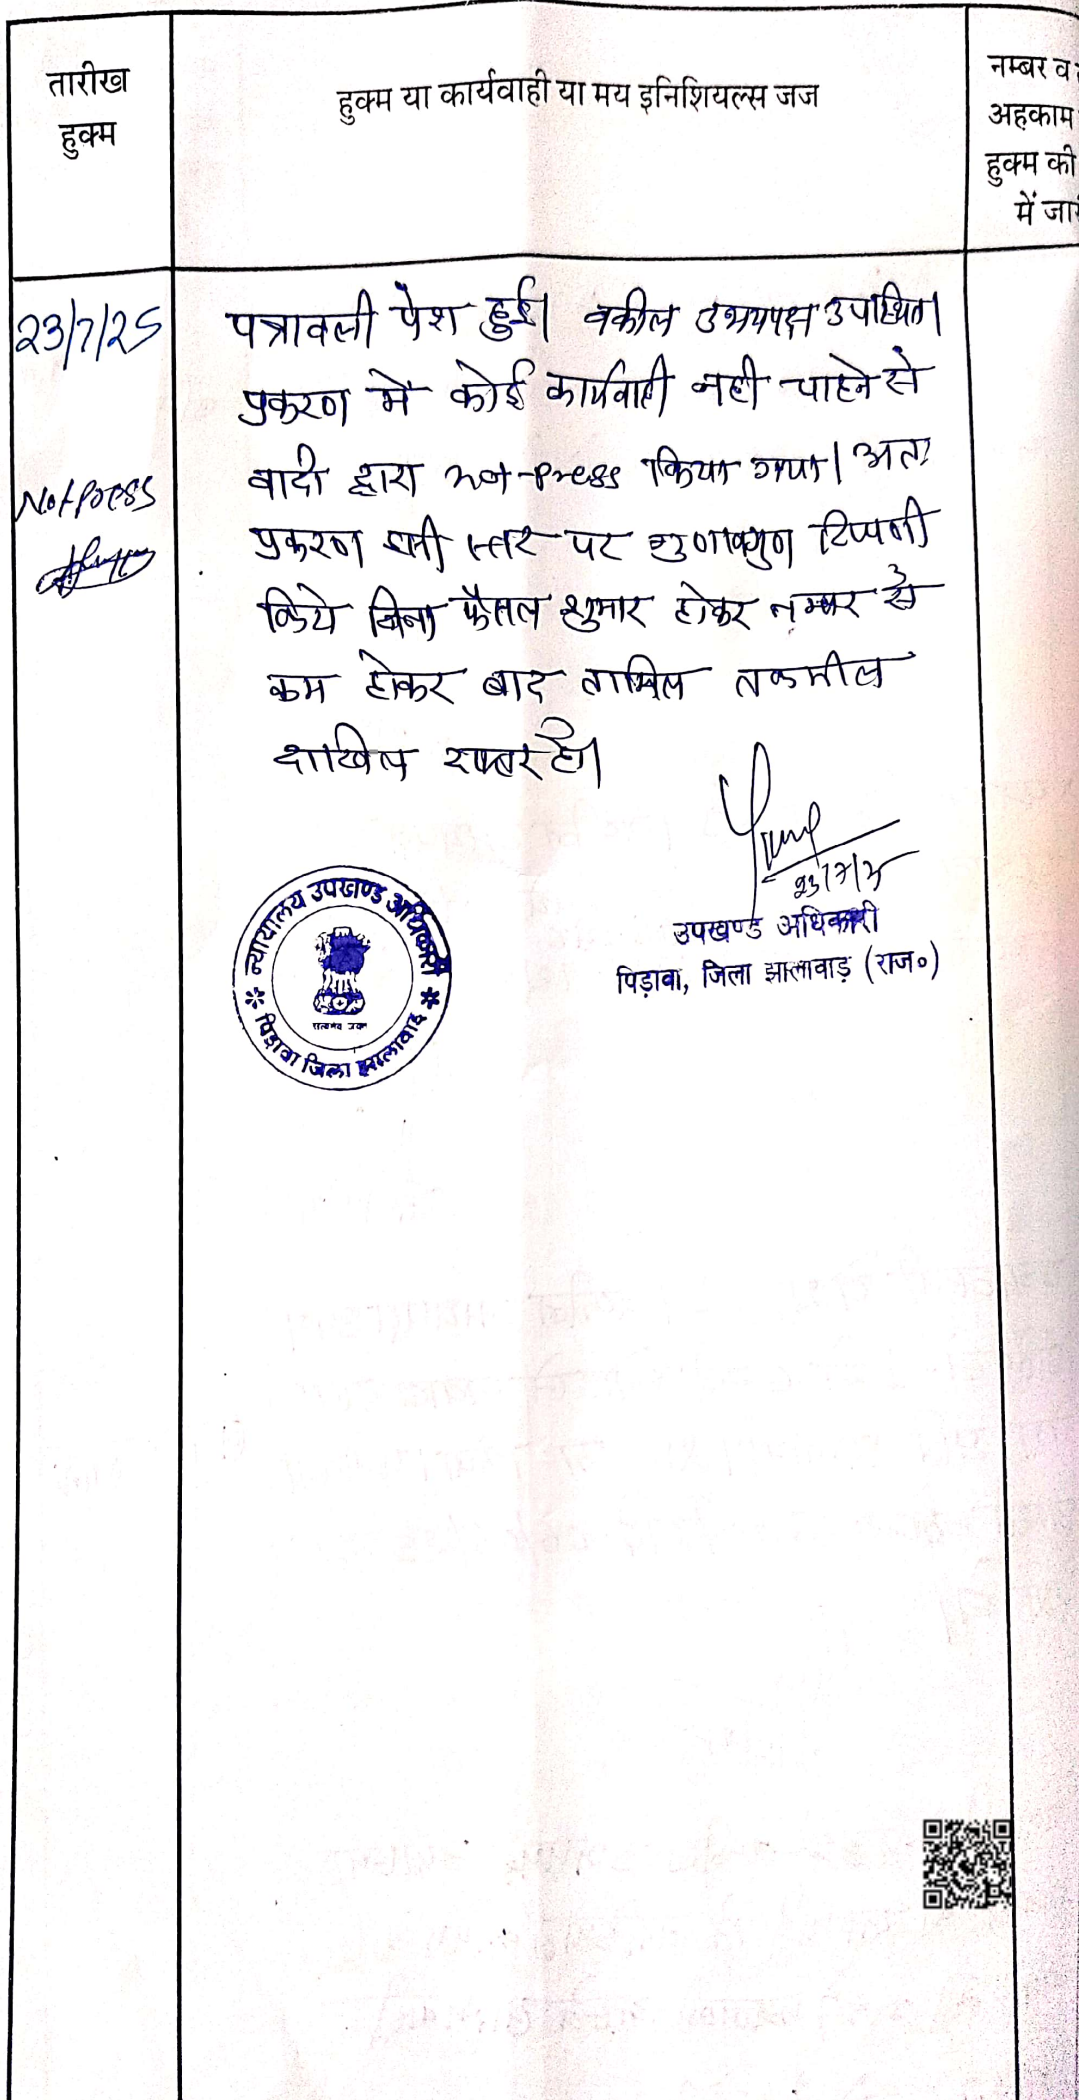 तारीख
हुक्म
हुक्म या कार्यवाही या मय इनिशियल्स जज
नम्बर व
अहकाम
हुक्म की
में जा
23/7/25
पत्रावली पेश हुई। वकील उभयपक्ष उपस्थित।
प्रकरण में कोई कार्यवाही नही चाहने से
वादी द्वारा not-press किया गया। अतः
प्रकरण इसी स्तर पर गुणावगुण टिप्पणी
किये बिना फैसल शुमार होकर नम्बर से
कम होकर बाद तामिल तकमील
दाखिल दफ्तर हो।
Not press
23/7/25
उपखण्ड अधिकारी
पिड़ावा, जिला झालावाड़ (राज०)
न्यायालय उपखण्ड अधिकारी
सत्यमेव जयते
पिड़ावा जिला झालावाड़